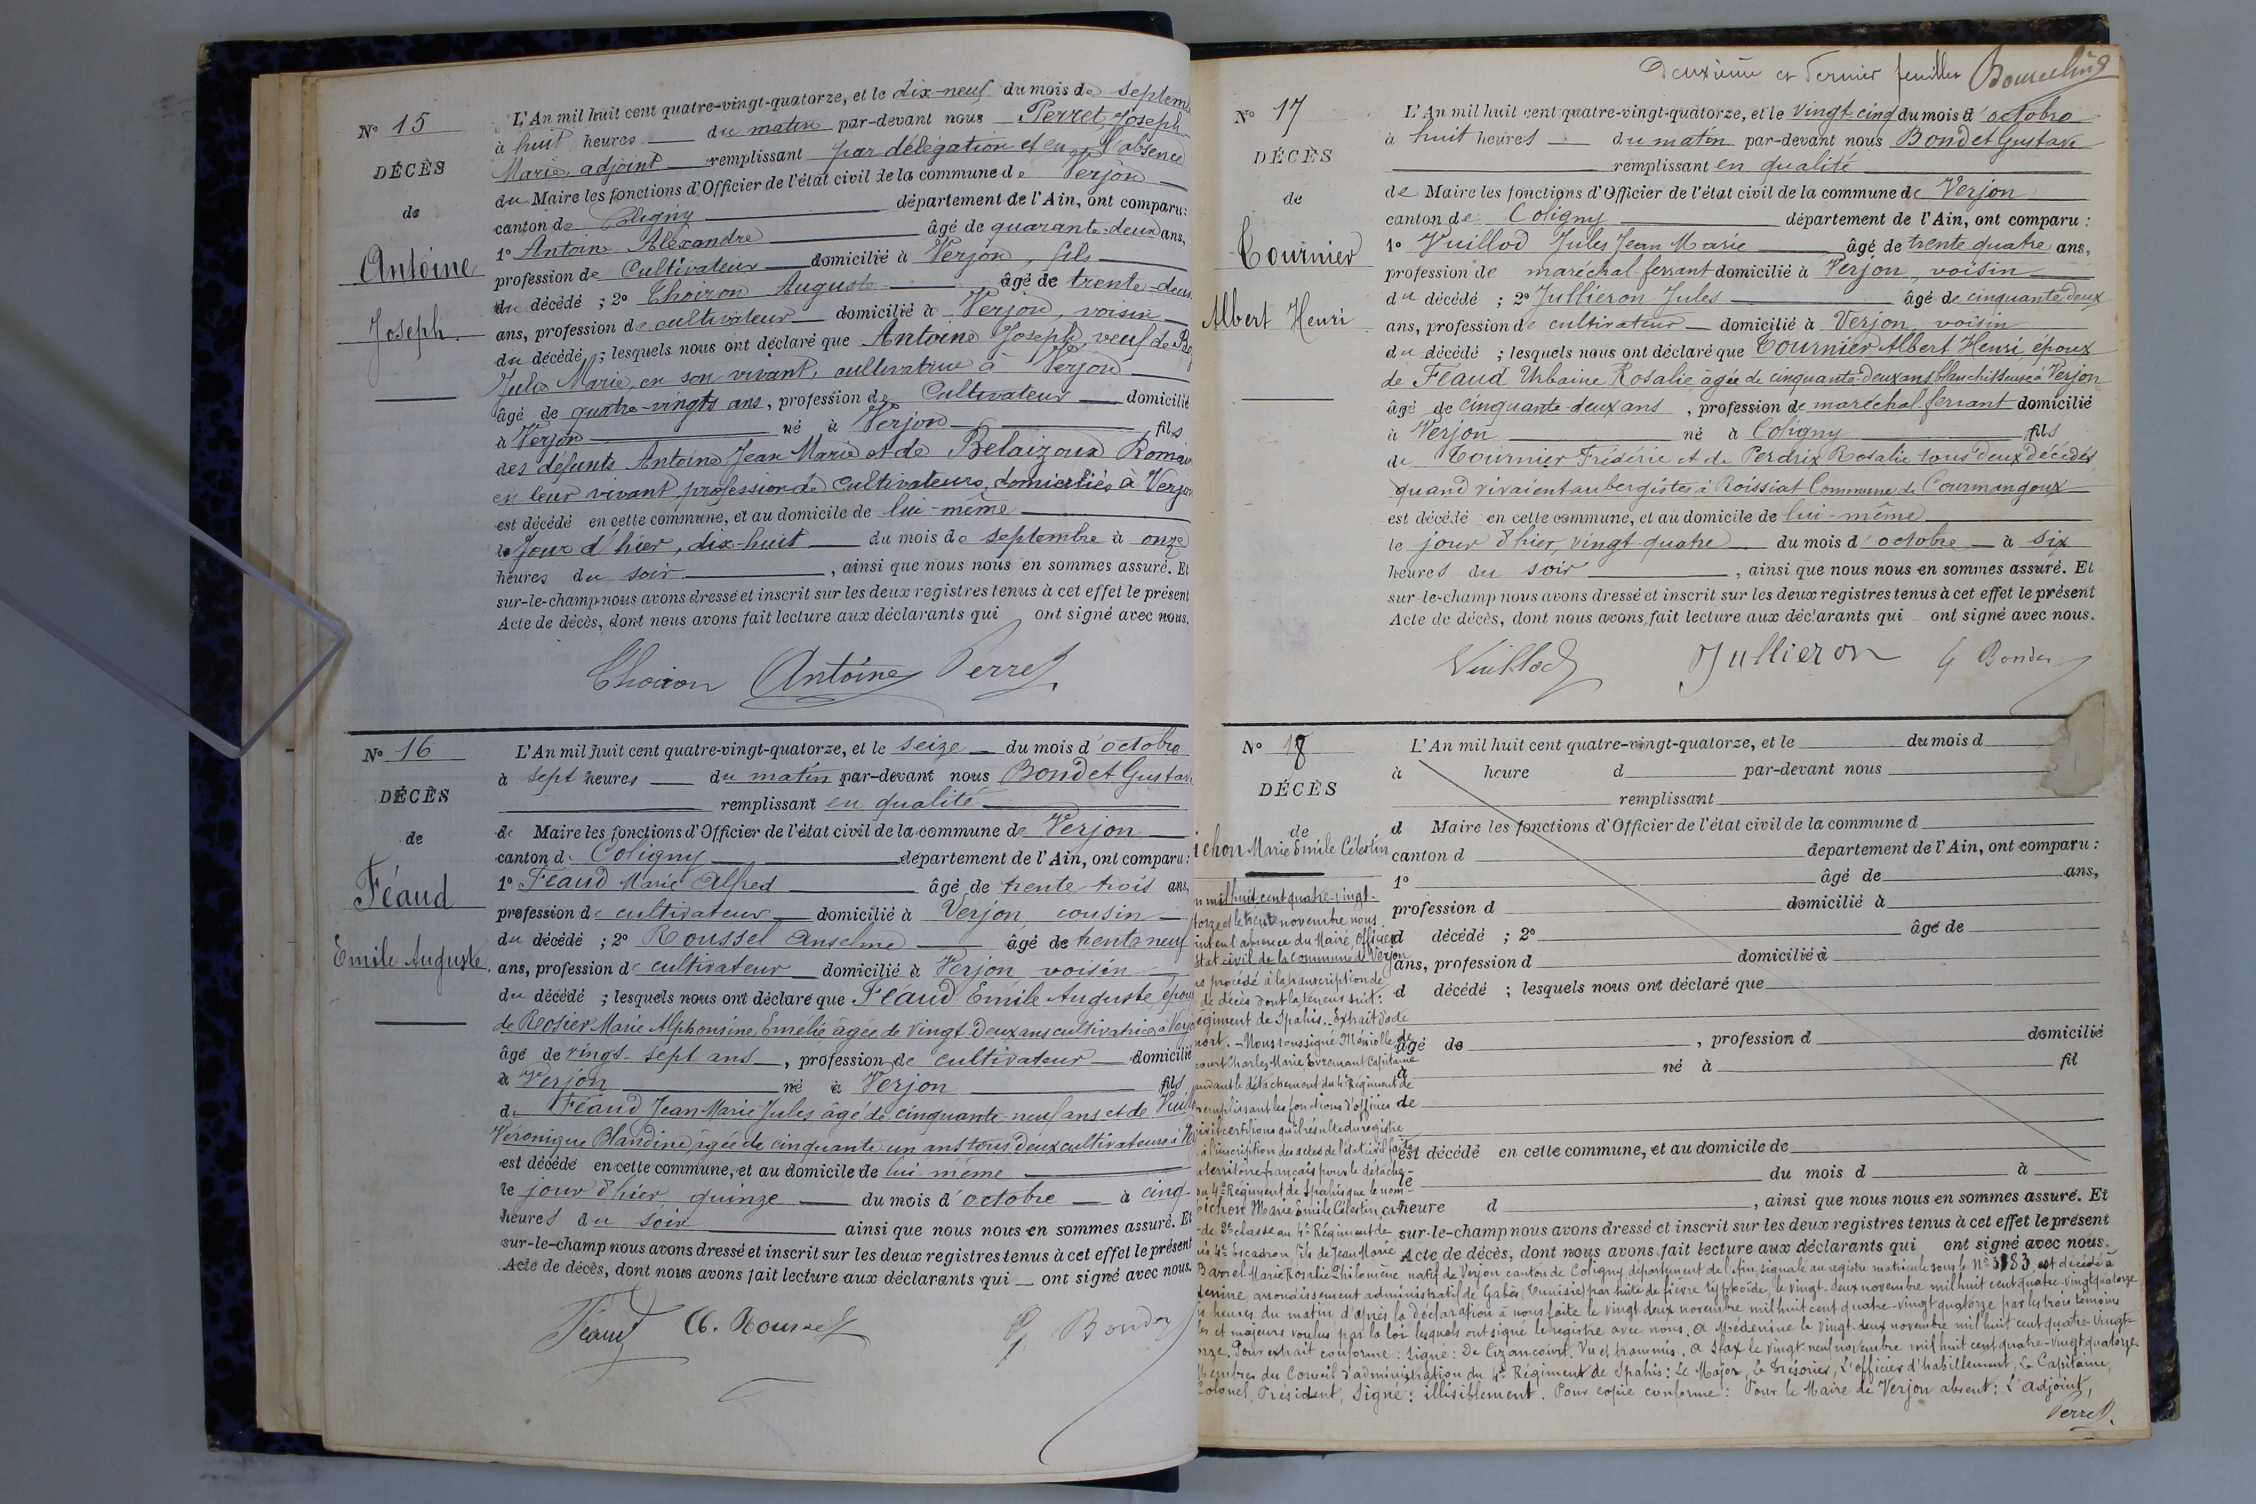 N° 15
DÉCÈS
de
Antoine
Joseph.
L'An mil huit cent quatre-vingt-quatorze, et le dix-neuf du mois de septem
à huit heures du matin par-devant nous Perret, Joseph
Marie, adjoint remplissant par délégation et en l'absence
du Maire les fonctions d'Officier de l'état civil de la commune de Verjon
canton de Coligny département de l'Ain, ont comparu:
1° Antoine Alexandre âgé de quarante-deux ans,
profession de Cultivateur domicilié à Verjon, fils
du décédé ; 2° Thoiron Auguste âgé de trente-deux
ans, profession de cultivateur domicilié à Verjon, voisin
du décédé ; lesquels nous ont déclaré que Antoine Joseph, veuf de
Julie Marie, en son vivant, cultivatrice à Verjon
âgé de quatre-vingts ans, profession de Cultivateur domicilié
à Verjon né à Verjon fils
des défunts Antoine Jean Marie et de Belaizoux Romai
en leur vivant profession de Cultivateurs, domiciliés à Verjon
est décédé en cette commune, et au domicile de lui-même
le Jour d'hier, dix-huit du mois de septembre à onze
heures du soir, ainsi que nous nous en sommes assuré. Et
sur-le-champ nous avons dressé et inscrit sur les deux registres tenus à cet effet le présent
Acte de décès, dont nous avons fait lecture aux déclarants qui ont signé avec nous.
Thoiron Antoine Perret
N° 16
DÉCÈS
de
Féaud
Emile Auguste.
L'An mil huit cent quatre-vingt-quatorze, et le seize du mois d'octobre
à sept heures du matin par-devant nous Bondet Gustave
remplissant en qualité
de Maire les fonctions d'Officier de l'état civil de la commune de Verjon
canton de Coligny département de l'Ain, ont comparu:
1° Féaud Marie Alfred âgé de trente-trois ans,
profession de cultivateur domicilié à Verjon cousin
du décédé ; 2° Roussel Anselme âgé de trente neuf
ans, profession de cultivateur domicilié à Verjon voisin
du décédé ; lesquels nous ont déclaré que Féaud Emile Auguste époux
de Rosier Marie Alphonsine Emélie âgée de vingt-deux ans cultivatrice à Verjon
âgé de vingt-sept ans, profession de cultivateur domicilié
à Verjon né à Verjon fils
de Féaud Jean Marie Jules âgé de cinquante neuf ans et de Vuill
Véronique Blandine, âgée de cinquante un ans tous deux cultivateurs à
est décédé en cette commune, et au domicile de lui-même
le jour d'hier quinze du mois d'octobre à cinq
heures du soir ainsi que nous nous en sommes assuré. Et
sur-le-champ nous avons dressé et inscrit sur les deux registres tenus à cet effet le présent
Acte de décès, dont nous avons fait lecture aux déclarants qui ont signé avec nous.
Féaud A. Roussel G. Bondet
Deuxième et dernier feuillet
N° 17
DÉCÈS
de
Tournier
Albert Henri
L'An mil huit cent quatre-vingt-quatorze, et le vingt-cinq du mois d'octobre
à huit heures du matin par-devant nous Bondet Gustave
remplissant en qualité
de Maire les fonctions d'Officier de l'état civil de la commune de Verjon
canton de Coligny département de l'Ain, ont comparu :
1° Vuillod Jules Jean Marie âgé de trente quatre ans,
profession de maréchal-ferrant domicilié à Verjon, voisin
du décédé ; 2° Jullieron Jules âgé de cinquante-deux
ans, profession de cultivateur domicilié à Verjon voisin
du décédé ; lesquels nous ont déclaré que Tournier Albert Henri, époux
de Féaud Urbaine Rosalie âgée de cinquante-deux ans blanchisseuse à Verjon
âgé de cinquante-deux ans, profession de maréchal ferrant domicilié
à Verjon né à Coligny fils
de Tournier Frédéric et de Perdrix Rosalie tous deux décédés
quand vivaient aubergistes à Roissiat Commune de Courmangoux
est décédé en cette commune, et au domicile de lui-même
le jour d'hier, vingt-quatre du mois d'octobre à six
heures du soir, ainsi que nous nous en sommes assuré. Et
sur-le-champ nous avons dressé et inscrit sur les deux registres tenus à cet effet le présent
Acte de décès, dont nous avons fait lecture aux déclarants qui ont signé avec nous.
Vuillod Jullieron G Bondet
N° 18
DÉCÈS
de
ichon Marie Emile Célestin
L'An mil huit cent quatre-vingt-quatorze, et le du mois d
à heure d par-devant nous
remplissant
d Maire les fonctions d'Officier de l'état civil de la commune d
canton d département de l'Ain, ont comparu :
1° âgé de ans,
profession d domicilié à
d décédé ; 2° âgé de
ans, profession d domicilié à
d décédé ; lesquels nous ont déclaré que
âgé de , profession d domicilié
à né à fil
de
est décédé en cette commune, et au domicile de
le du mois d à
heure d , ainsi que nous nous en sommes assuré. Et
sur-le-champ nous avons dressé et inscrit sur les deux registres tenus à cet effet le présent
Acte de décès, dont nous avons fait lecture aux déclarants qui ont signé avec nous.
n mil huit cent quatre-vingt-
torze et le trente novembre nous
oint en l'absence du Maire, Officier
état civil de la commune de Verjon
ns procédé à la transcription de
de décès dont la teneur suit:
égiment de Spahis.. Extrait d'acte de
mort. - Nous soussigné
court Charles Marie Capitaine
mandant le détachement du 4e Régiment de
remplissant les fonctions d'officier
civil certifions qu'il résulte du registre
à l'inscription des actes de l'état civil fait
territoire français pour le détache-
du 4e Régiment de Spahis que le nom-
ichon Marie Emile Célestin, ca-
de 2e classe au 4e Régiment de
is 4e Escadron fils de Jean Marie
Barnel Marie Rosalie Philomène natif de Verjon canton de Coligny, département de l'Ain, signalé au registre matricule sous le N° 3183, est décédé à
denine, arrondissement administratif de Gabès (Tunisie) par suite de fièvre typhoïde, le vingt-deux novembre mil huit cent quatre-vingt quatorze
heures du matin d'après la déclaration à nous faite le vingt deux novembre mil huit cent quatre-vingt quatorze par les trois témoins
les et majeurs voulus par la loi lesquels ont signé le registre avec nous. A Médenine le vingt-deux novembre mil huit cent quatre-vingt-
orze. Pour extrait conforme : Signé : de Cizancourt. Vu et transmis. A Sfax le vingt-neuf novembre mil huit cent quatre-vingt quatorze.
Membres du Conseil d'administration du 4e Régiment de Spahis : Le Major, Le Trésorier, L'officier d'habillement, Le Capitaine,
Colonel, Président, Signé : illisiblement. Pour copie conforme : Pour le Maire de Verjon absent : L'adjoint,
Perret.